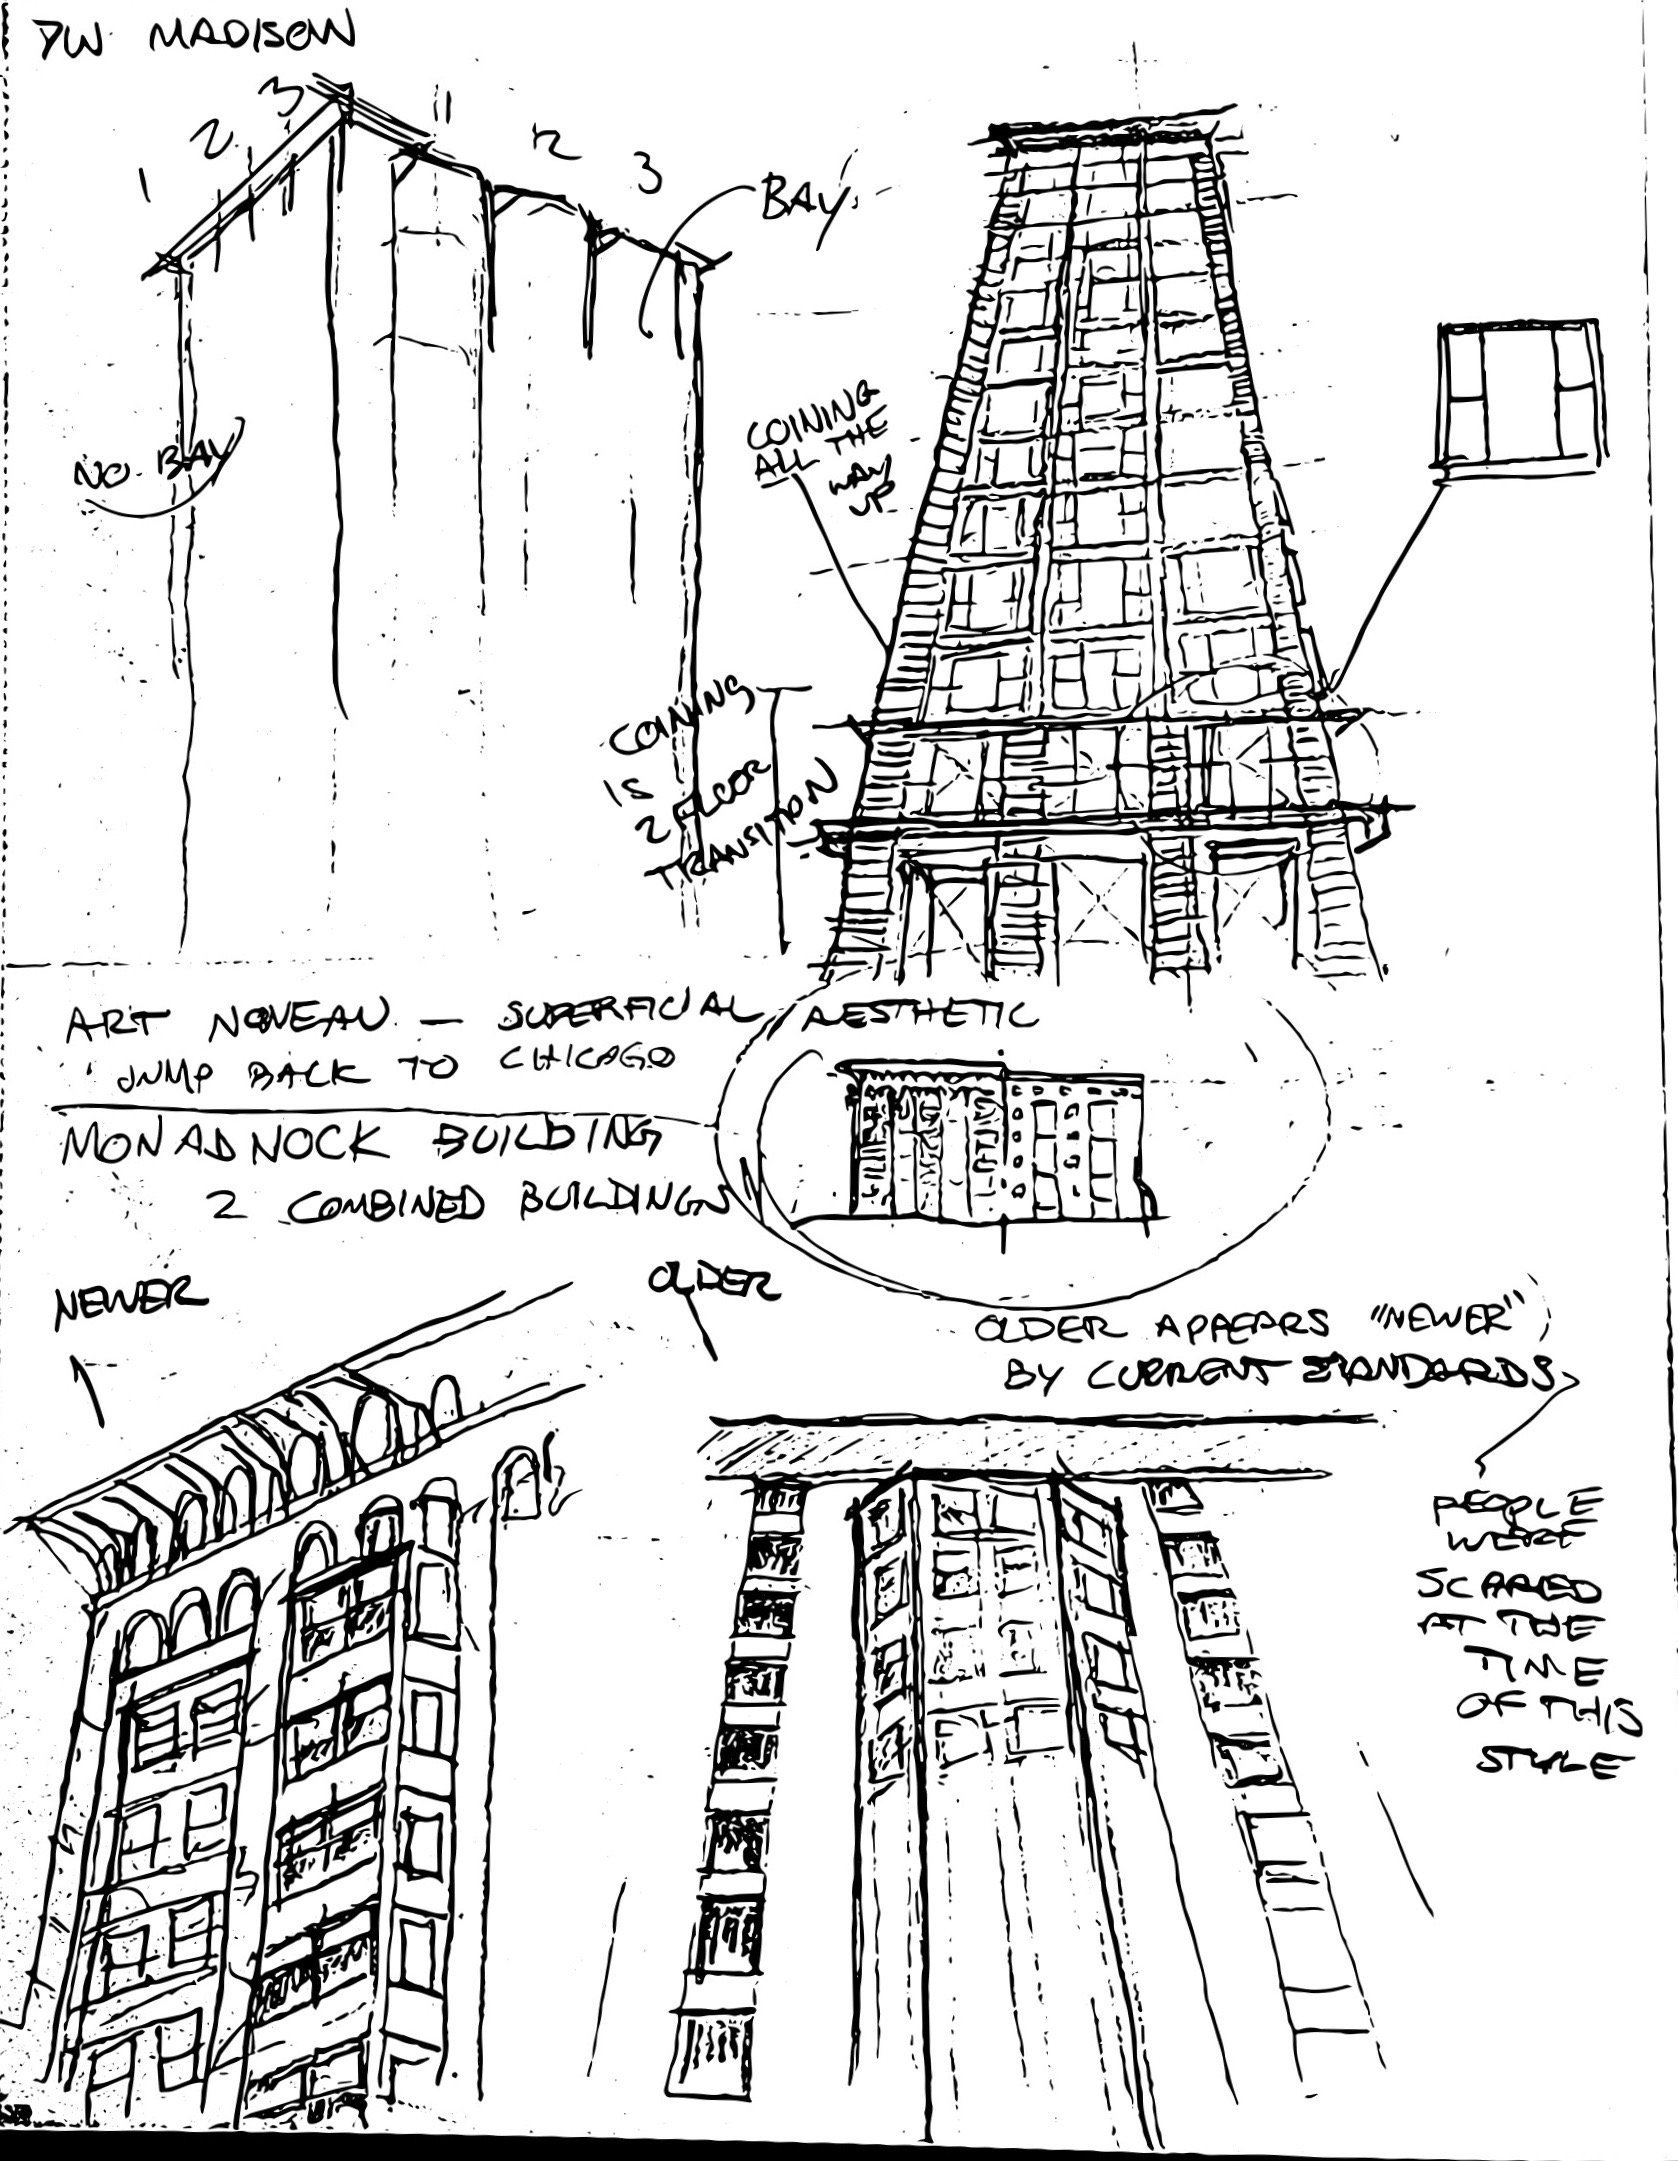 7W MADISON
1 2 3 1 2 3
BAY
NO BAY
COINING
ALL THE
WAY
UP
COINING
IS
2 FLOOR
TRANSITION
ART NOVEAU — SUPERFICIAL AESTHETIC
JUMP BACK TO CHICAGO
MONADNOCK BUILDING
2 COMBINED BUILDINGS
NEWER
OLDER
OLDER APPEARS "NEWER"
BY CURRENT STANDARDS
PEOPLE
WERE
SCARED
AT THE
TIME
OF THIS
STYLE